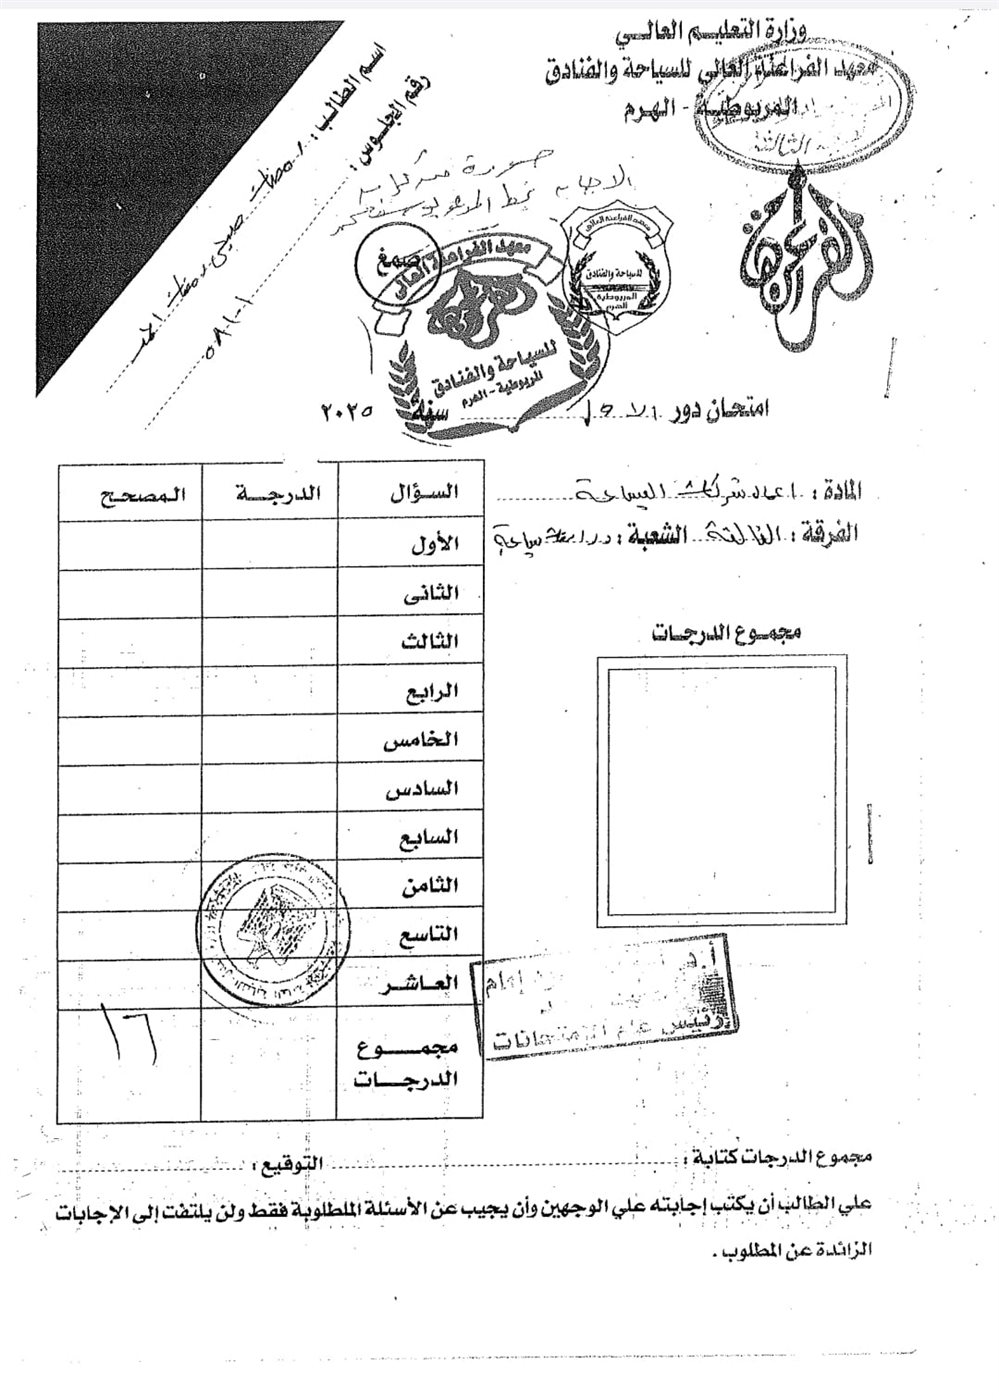 وزارة التعليم العالي
معهد الفراعنة العالي للسياحة والفنادق
المريوطية - الهرم
الثالثة
اسم الطالب :
رقم الجلوس :
صورة
الاجابة
صمغ
معهد الفراعنة العالي
للسياحة والفنادق
المريوطية - الهرم
معهد الفراعنة العالي
للسياحة والفنادق
المريوطية
الهرم
الفراعنة
امتحان دور الاول سنة ٢٠٢٥
المادة : اعمال شركات السياحة
الفرقة : الثالثة الشعبة : دراسات سياحية
السؤال الدرجة المصحح
الأول
الثانى
الثالث
الرابع
الخامس
السادس
السابع
الثامن
التاسع
العاشر
مجموع الدرجات ١٦
مجموع الدرجات
أ.د
إمام
رئيس عام الامتحانات
مجموع الدرجات كتابة : التوقيع :
علي الطالب أن يكتب إجابته علي الوجهين وأن يجيب عن الأسئلة الملطلوبة فقط ولن يلتفت إلى الإجابات
الزائدة عن المطلوب .